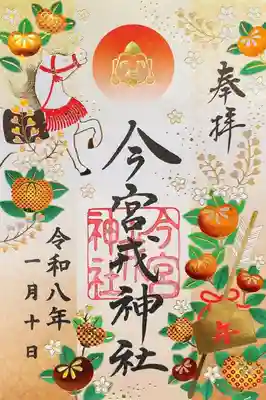 奉拝
今宮戎神社
今宮
神社
令和八年
一月十日